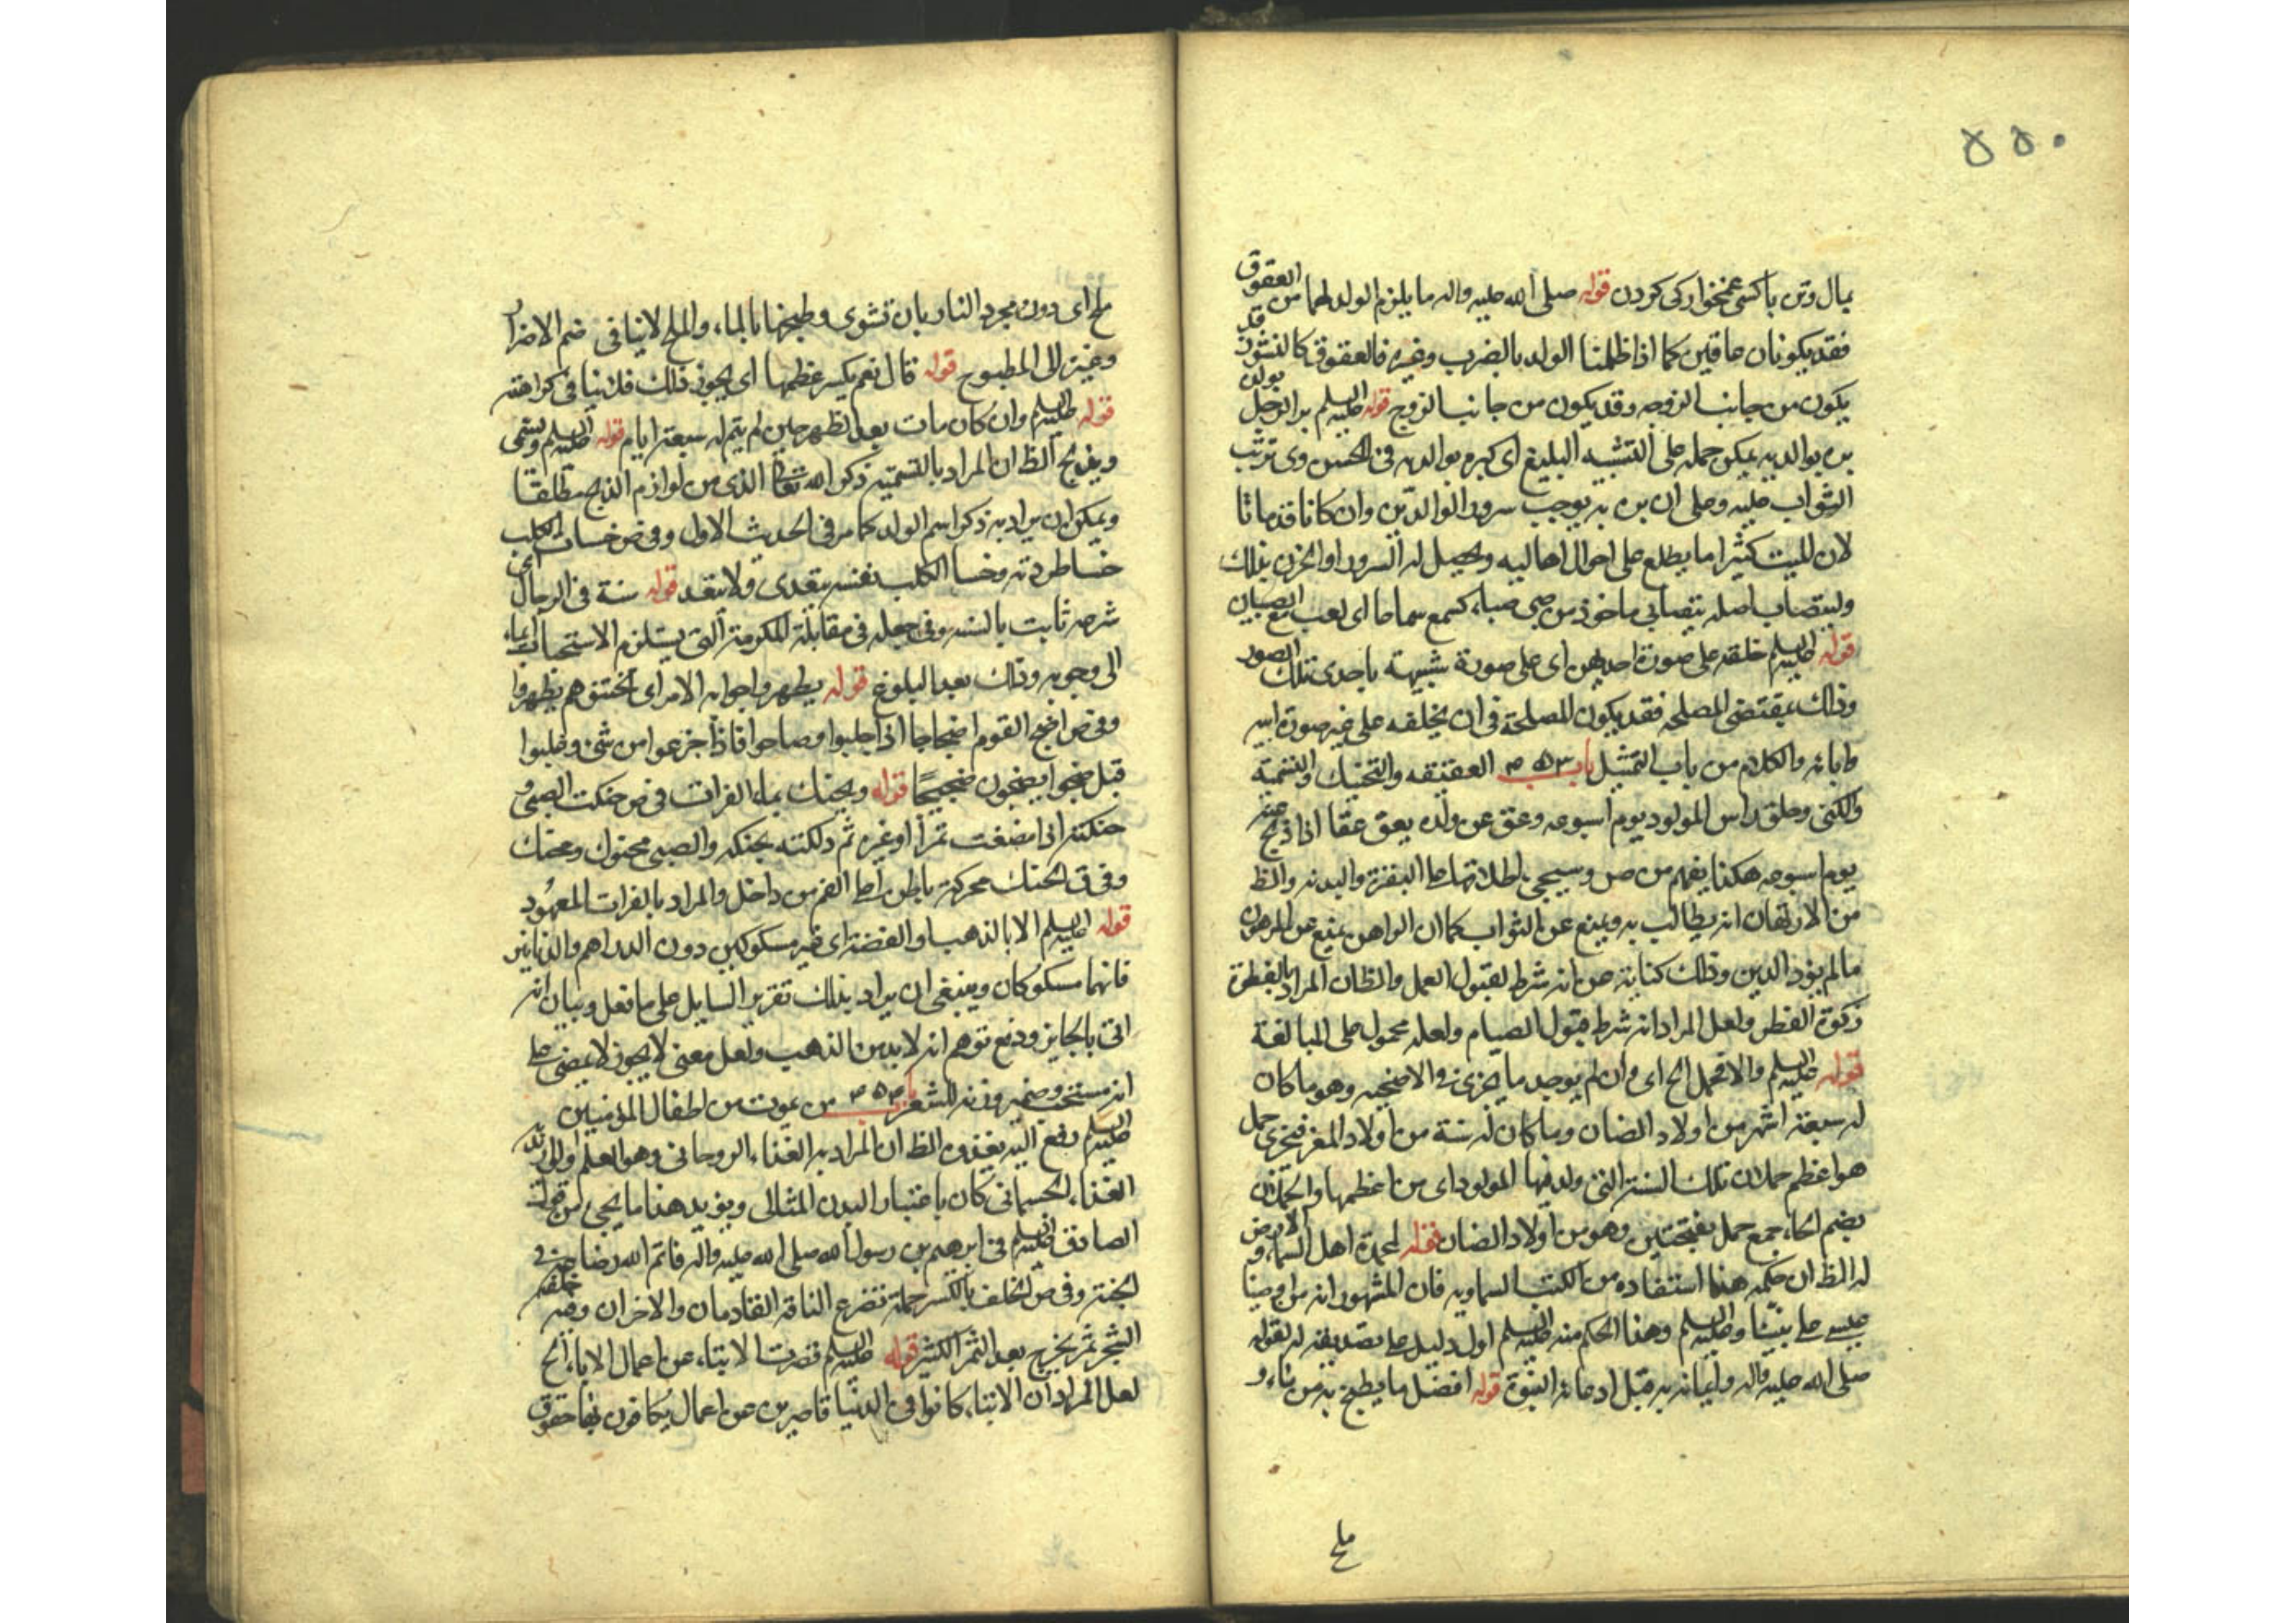 ۵۵۰
بمال وتن باكسى غمخواركى كردن قوله صلى الله عليه واله ما يلزم الولد لهما من العقوق
فقد يكونان عاقين كما اذا ظلمنا الولد بالضرب وغيره فالعقوق كالنشوز قد
يكون من جانب الزوجه وقد يكون من جانب الزوج قوله عليه السلم بر الرجل بولده
بره بوالديه يمكن حمله على التشبيه البليغ اى كبره بوالديه فى الحسن وفى ترتب
الثواب عليه وعلى ان بره به يوجب سرور الوالدين وان كانا قد ماتا
لان للميت كثيرا ما يطلع على احوال اهاليه ويحصل له السرور او الحزن بذلك
وليتصاب اصله يتصابى ماخوذ من صبى صباء كسمع سماعا اى لعب مع الصبيان
قوله عليه السلم خلقه على صورة احدهن اى على صورة شبيهة باحدى تلك الصور
وذلك بمقتضى المصلحه فقد يكون المصلحة فى ان يخلقه على غير صورة ابيه
وابائه والكلام من باب التمثيل باب ۵۳ م العقيقه والتحنيك والتسمية
والكنى وحلق راس المولود يوم اسبوعه وعق عن ولده يعق عقا اذا ذبح عنه
يوم اسبوعه هكذا يفهم من ص وسيجى اطلاقها على البقرة والبدنه والظ
من الارتهان انه يطالب به ويمنع عن الثواب كما ان الراهن يمنع عن المرهون
مالم يؤد الدين وذلك كناية عن انه شرط لقبول العمل والظان المراد بالفطرة
زكوة الفطر ولعل المراد انه شرط قبول الصيام ولعله محمول على المبالغة
قوله عليه السلم والا فحمل الخ اى وان لم يوجد ما يجزى فى الاضحيه وهو ما كان
له سبعة اشهر من اولاد الضان وما كان له سنة من اولاد المعز فيجزى حمل
هو اعظم حملان تلك السنة التى ولد فيها المولود اى من اعظمها والحملان
بضم الحاء جمع حمل بفتحتين وهو من اولاد الضان قوله لمحمدة اهل السماء والارض
له الظ ان حكمه هذا استفاده من الكتب السماويه فان المشهور انه من اوصيا
عيسى على نبينا وعليه السلم وهذا الحكم منه عليه السلم اول دليل على تصديقه له لقوله
صلى الله عليه واله وايمانه به قبل ادعائه النبوة قوله افضل ما يطبخ به من ماء و
ملح
ملح اى دون مجرد النار بان تشوى وطبخها بالماء والملح لا ينافى ضم الابزار
وغيره الى المطبوخ قوله قال نعم يكسر عظمها اى يجوز ذلك فلا ينافى كراهته
قوله عليه السلم وان كان مات بعد الظهر حين لم يتم له سبعة ايام قوله عليه السلم ويسمى
ويذبح الظ ان المراد بالتسمية ذكر الله تعالى الذى من لوازم الذبح مطلقا
ويمكن ان يراد به ذكر اسم الولد كما مر فى الحديث الاول وفى ص خسات الكلب
خسا طردته وخسا الكلب نفسه يتعدى ولا يتعد قوله سنة فى الرجال اى
شرعه ثابت بالسنه وفى جعله فى مقابلة المكرمة التى يستلزم الاستحباب ايماء
الى وجوبه وذلك بعد البلوغ قوله يطهروا جوابه الامر اى اختتنوهم يطهروا
وفى ص اضج القوم اضجاجا اذا جلبوا وصاحوا فاذا جزعوا من شئ وغلبوا
قيل ضجوا يضجون ضجيجا قوله ويحنك بماء الفرات فى ص حنكت الصبى و
حنكته اذا مضغت تمرا او غيره ثم دلكته بحنكه والصبى محنوك ومحنك
وفى ق الحنك محركة باطن اعلى الفم من داخل والمراد بالفرات المعهود
قوله عليه السلم الا بالذهب او الفضة اى غير مسكوكين دون الدراهم والدنانير
فانهما مسكوكان وينبغى ان يراد بذلك تقرير السايل على ما فعل وبيان انه
اتى بالجايز ودفع توهم انه لابد من الذهب ولعل معنى لا يجوز لا يمضى على
انه مستحب وضمير وزنه للشعر باب ۵۴ م من يموت من اطفال المؤمنين
عليه السلم رفع اليه يغذوه الظ ان المراد به الغذاء الروحانى وهو العلم ولو اريد
الغذاء الجسمانى كان باعتبار البدن المثالى ويؤيد هذا ما يجى من قول
الصادق عليه السلم فى ابرهيم بن رسول الله صلى الله عليه واله فاتم الله رضاعه فى
الجنة وفى ص الخلف بالكسر حلمة ضرع الناقة القادمان والاخران وفيه خلفه
الشجر ثمر يخرج بعد الثمر الكثير قوله عليه السلم قصرت الابناء عن اعمال الاباء الخ
لعل المراد ان الابناء كانوا فى الدنيا قاصرين عن اعمال يكافون بها حقوق